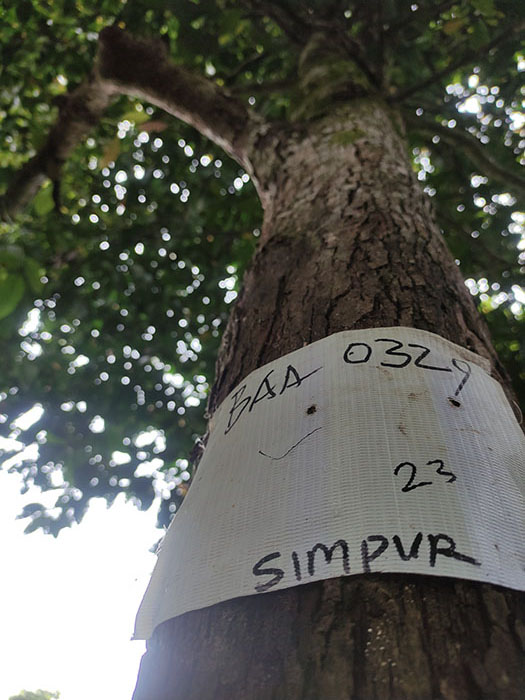 BAA 0329
23
SIMPUR